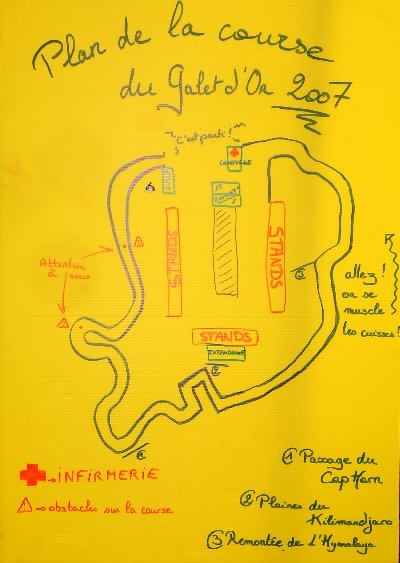 Plan de la course
du Galet d'Or 2007
c'est parti!
STANDS
STANDS
Attention
à vous
allez!
on se
muscle
les cuisses!
STANDS
INTENDANCE
②
③
①
→ INFIRMERIE
→ obstacles sur la course
① Passage du
Cap Horn
② Plaines du
Kilimandjaro
③ Remontée de l'Hymalaya